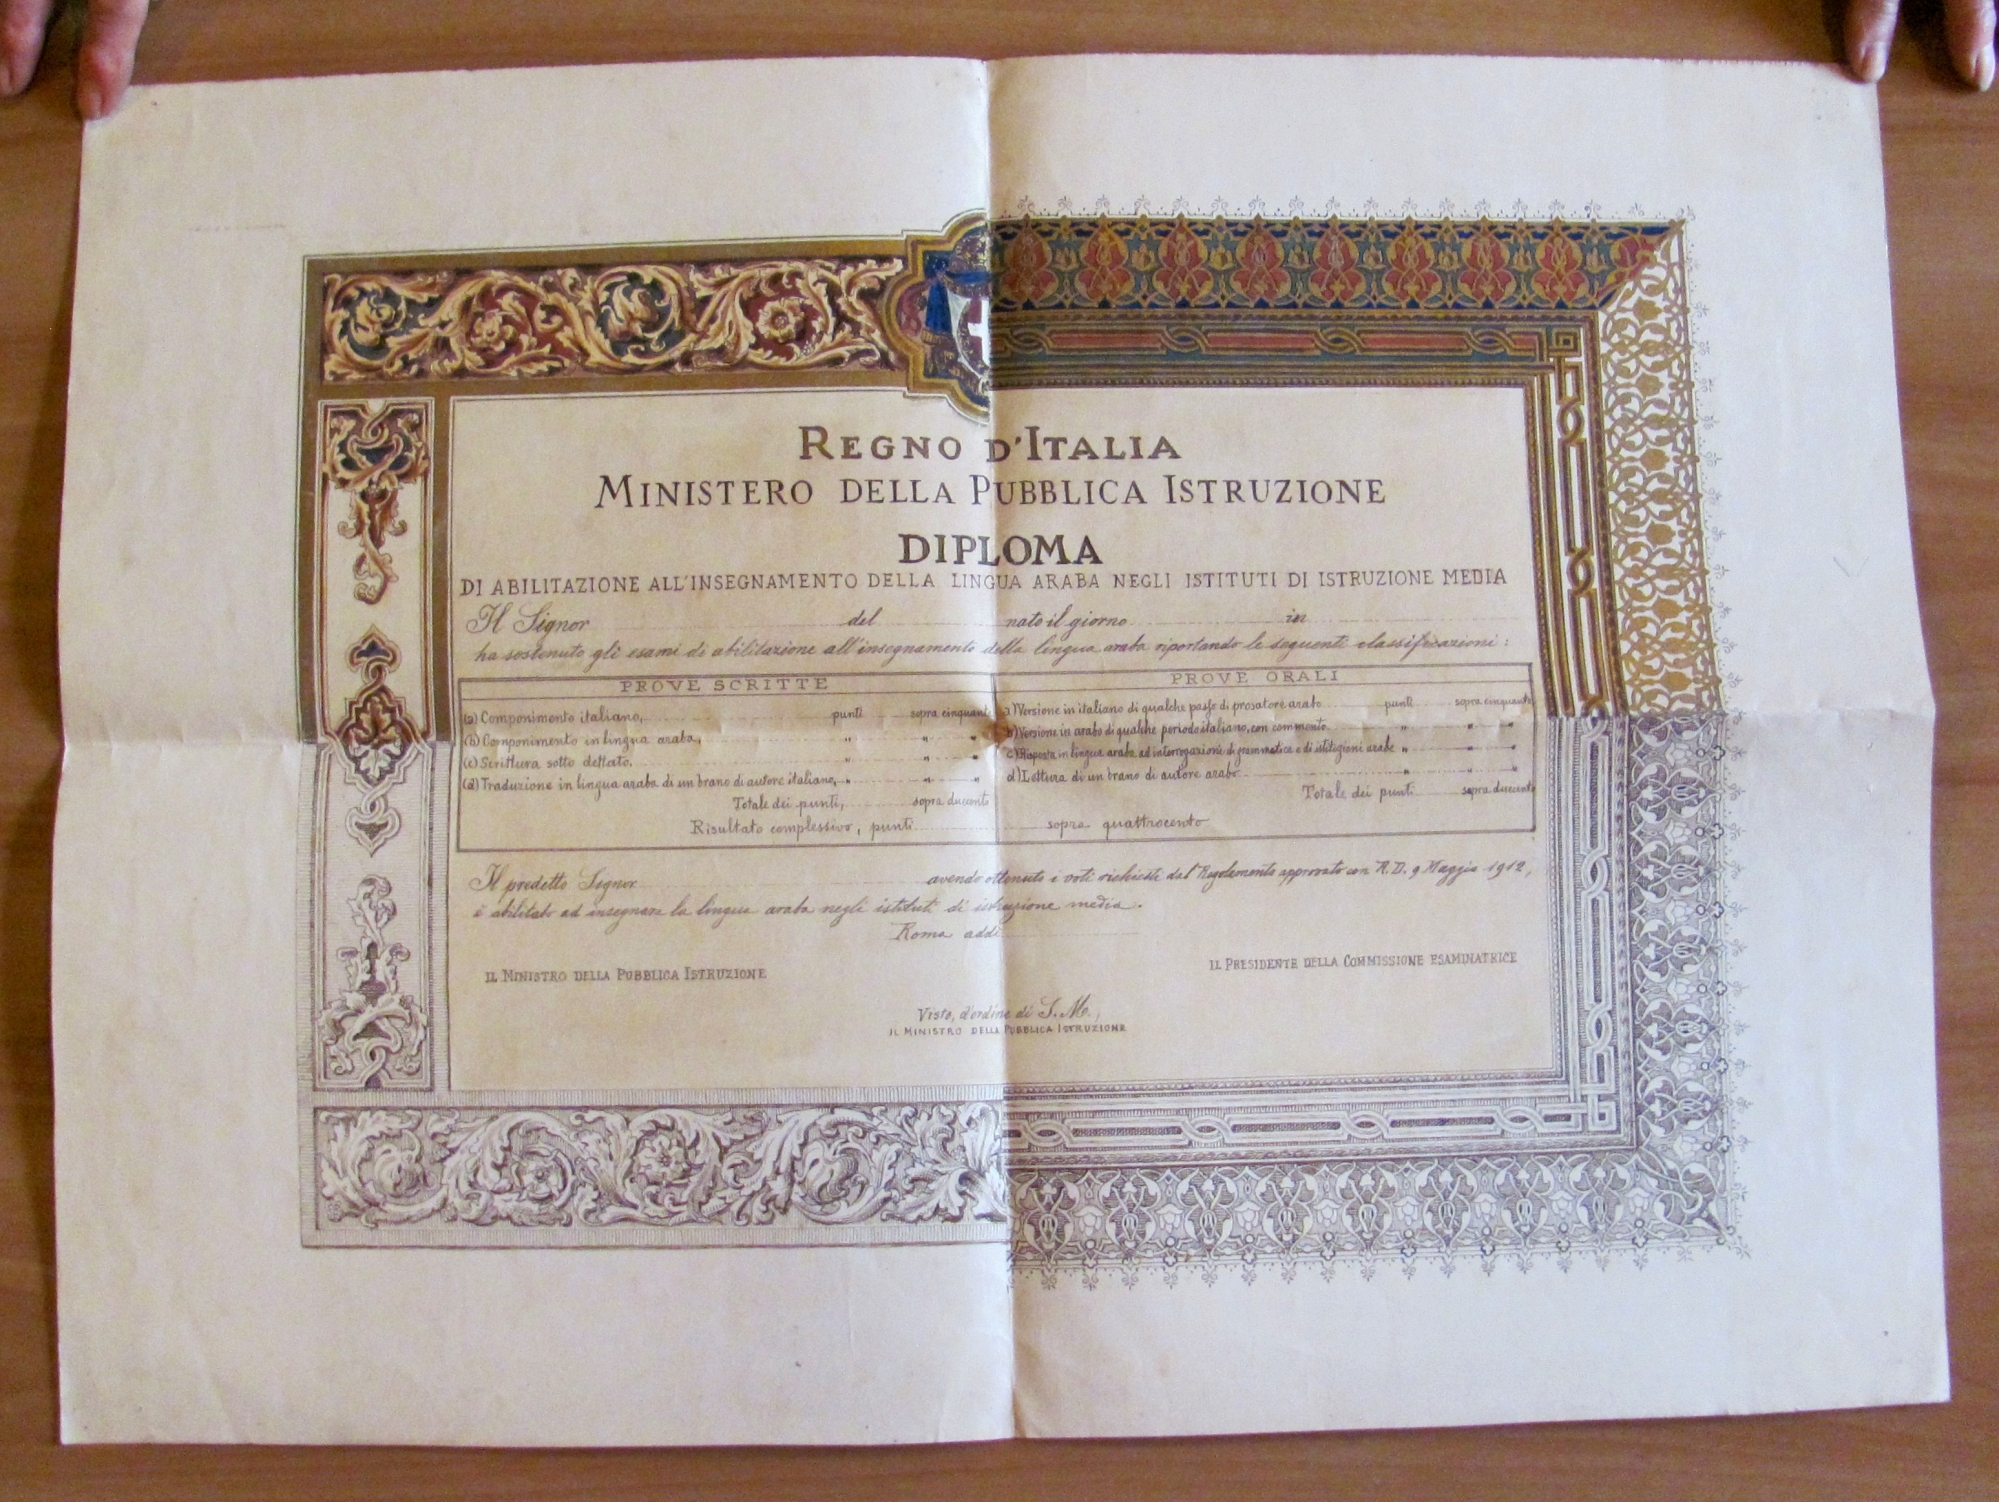 REGNO D'ITALIA
MINISTERO DELLA PUBBLICA ISTRUZIONE
DIPLOMA
DI ABILITAZIONE ALL'INSEGNAMENTO DELLA LINGUA ARABA NEGLI ISTITUTI DI ISTRUZIONE MEDIA
Il Signor del nato il giorno in
ha sostenuto gli esami di abilitazione all'insegnamento della lingua araba riportando le seguenti classificazioni:
PROVE SCRITTE
(a) Componimento italiano, punti sopra cinquanta
(b) Componimento in lingua araba, " " "
(c) Scrittura sotto dettato. " " "
(d) Traduzione in lingua araba di un brano di autore italiano, " " "
Totale dei punti, sopra duecento
PROVE ORALI
a) Versione in italiano di qualche passo di prosatore arabo punti sopra cinquanta
b) Versione in arabo di qualche periodo italiano, con commento " " "
c) Risposta in lingua araba ad interrogazione di grammatica e di istituzioni arabe " " "
d) Lettura di un brano di autore arabo " " "
Totale dei punti sopra duecento
Risultato complessivo, punti sopra quattrocento
Il predetto Signor avendo ottenuto i voti richiesti dal Regolamento approvato con R. D. 9 Maggio 1912,
è abilitato ad insegnare la lingua araba negli istituti di istruzione media.
Roma addì
IL MINISTRO DELLA PUBBLICA ISTRUZIONE
IL PRESIDENTE DELLA COMMISSIONE ESAMINATRICE
Visto, d'ordine di S. M.,
IL MINISTRO DELLA PUBBLICA ISTRUZIONE